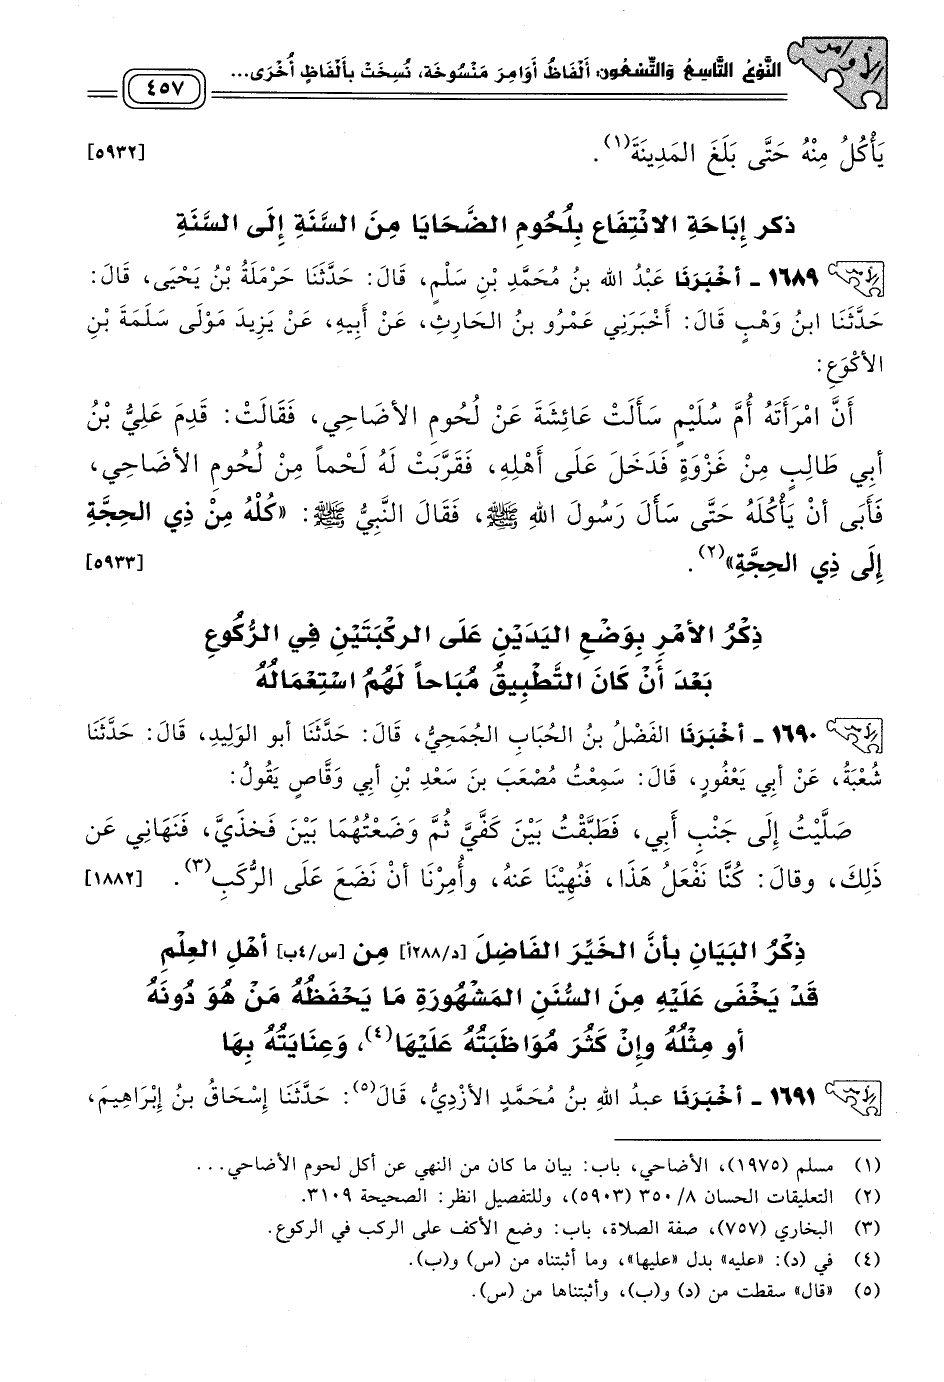 الأوامر
النَّوْعُ التَّاسِعُ وَالتِّسْعُونَ: أَلْفَاظُ أَوَامِرَ مَنْسُوخَة، نُسِخَتْ بِأَلْفَاظٍ أُخْرَى...
٤٥٧
يَأْكُلُ مِنْهُ حَتَّى بَلَغَ المَدِينَةَ(١). [٥٩٣٢]
ذكر إبَاحَةِ الانْتِفَاعِ بِلُحُومِ الضَّحَايَا مِنَ السَّنَةِ إِلَى السَّنَةِ
١٦٨٩ - أخْبَرَنَا عَبْدُ الله بنُ مُحَمَّدِ بْنِ سَلْمٍ، قَالَ: حَدَّثَنَا حَرْمَلَةُ بْنُ يَحْيَى، قَالَ:
حَدَّثَنَا ابنُ وَهْبٍ قَالَ: أَخْبَرَنِي عَمْرُو بنُ الحَارِثِ، عَنْ أَبِيهِ، عَنْ يَزِيدَ مَوْلَى سَلَمَةَ بْنِ
الأكْوَعِ:
أَنَّ امْرَأَتَهُ أُمَّ سُلَيْمٍ سَأَلَتْ عَائِشَةَ عَنْ لُحُومِ الأضَاحِي، فَقَالَتْ: قَدِمَ عَلِيُّ بْنُ
أبي طَالِبٍ مِنْ غَزْوَةٍ فَدَخَلَ عَلَى أَهْلِهِ، فَقَرَّبَتْ لَهُ لَحْماً مِنْ لُحُومِ الأضَاحِي،
فَأَبَى أنْ يَأْكُلَهُ حَتَّى سَأَلَ رَسُولَ اللهِ ﷺ، فَقَالَ النَّبِيُّ ﷺ: «كُلْهُ مِنْ ذِي الحِجَّةِ
إِلَى ذِي الحِجَّةِ»(٢). [٥٩٣٣]
ذِكْرُ الأمْرِ بِوَضْعِ اليَدَيْنِ عَلَى الرِكْبَتَيْنِ فِي الرُّكُوعِ
بَعْدَ أَنْ كَانَ التَّطْبِيقُ مُبَاحاً لَهُمُ اسْتِعْمَالُهُ
١٦٩٠ - أخْبَرَنَا الفَضْلُ بنُ الحُبَابِ الجُمَحِيُّ، قَالَ: حَدَّثَنَا أبو الوَلِيدِ، قَالَ: حَدَّثَنَا
شُعْبَةُ، عَنْ أبِي يَعْفُورٍ، قَالَ: سَمِعْتُ مُصْعَبَ بنَ سَعْدِ بْنِ أبي وَقَّاصٍ يَقُولُ:
صَلَّيْتُ إِلَى جَنْبِ أَبِي، فَطَبَّقْتُ بَيْنَ كَفَّيَّ ثُمَّ وَضَعْتُهُمَا بَيْنَ فَخِذَيَّ، فَنَهَانِي عَن
ذَلِكَ، وقالَ: كُنَّا نَفْعَلُ هَذَا، فَنُهِيْنَا عَنهُ، وأُمِرْنَا أنْ نَضَعَ عَلَى الرُّكَبِ(٣). [١٨٨٢]
ذِكْرُ البَيَانِ بأنَّ الخَيِّرَ الفَاضِلَ [د/٢٨٨أ] مِن [س/٤ب] أهْلِ العِلْمِ
قَدْ يَخْفَى عَلَيْهِ مِنَ السُّنَنِ المَشْهُورَةِ مَا يَحْفَظُهُ مَنْ هُوَ دُونَهُ
أو مِثْلُهُ وإنْ كَثُرَ مُوَاظَبَتُهُ عَلَيْهَا(٤)، وَعِنَايَتُهُ بِهَا
١٦٩١ - أخْبَرَنَا عبدُ اللهِ بنُ مُحَمَّدٍ الأزْدِيُّ، قَالَ(٥): حَدَّثَنَا إسْحَاقُ بنُ إبْرَاهِيمَ،
(١) مسلم (١٩٧٥)، الأضاحي، باب: بيان ما كان من النهي عن أكل لحوم الأضاحي...
(٢) التعليقات الحسان ٨/ ٣٥٠ (٥٩٠٣)، وللتفصيل انظر: الصحيحة ٣١٠٩.
(٣) البخاري (٧٥٧)، صفة الصلاة، باب: وضع الأكف على الركب في الركوع.
(٤) في (د): «عليه» بدل «عليها»، وما أثبتناه من (س) و(ب).
(٥) «قال» سقطت من (د) و(ب)، وأثبتناها من (س).